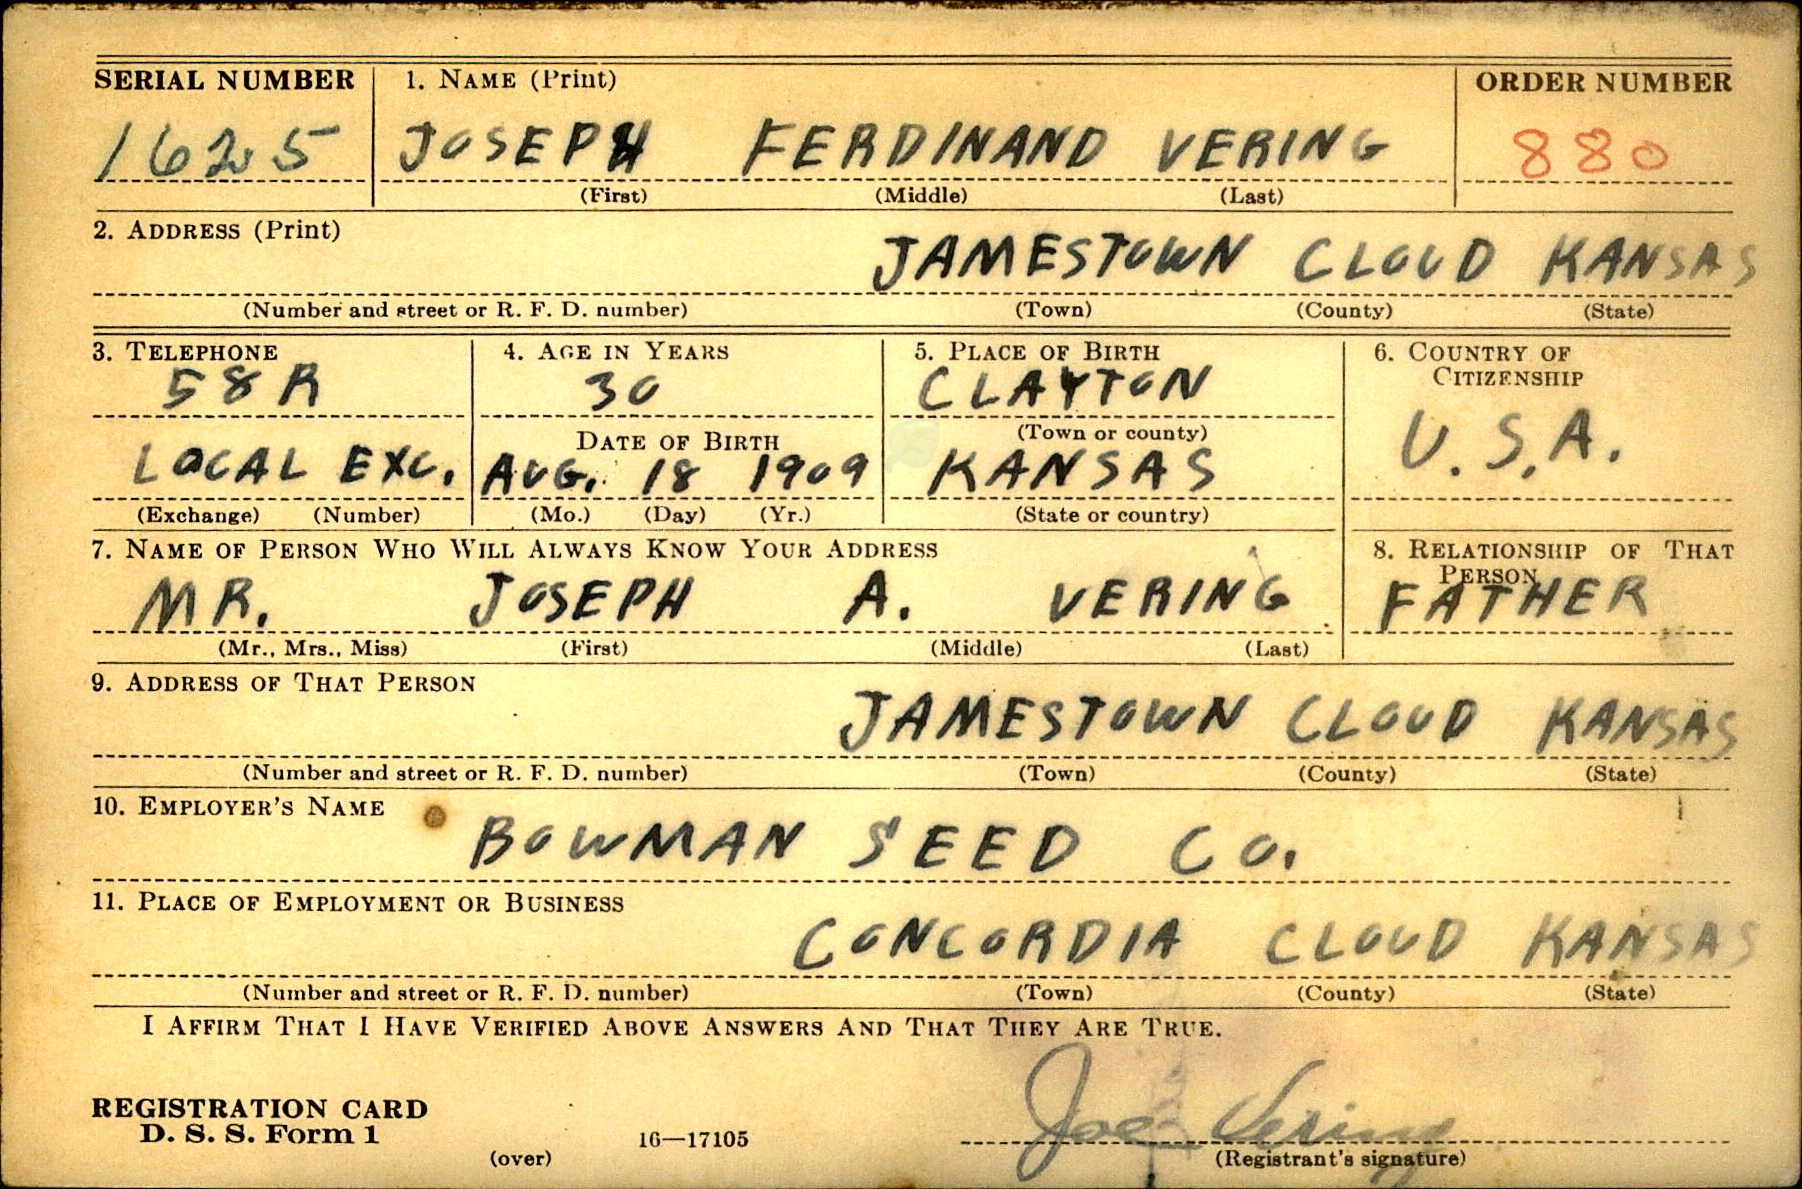 SERIAL NUMBER 1. NAME (Print) ORDER NUMBER
1625 JOSEPH FERDINAND VERING 880
(First) (Middle) (Last)
2. ADDRESS (Print)
JAMESTOWN CLOUD KANSAS
(Number and street or R. F. D. number) (Town) (County) (State)
3. TELEPHONE 4. AGE IN YEARS 5. PLACE OF BIRTH 6. COUNTRY OF CITIZENSHIP
58R 30 CLAYTON
DATE OF BIRTH (Town or county) U.S.A.
LOCAL EXC. AUG. 18 1909 KANSAS
(Exchange) (Number) (Mo.) (Day) (Yr.) (State or country)
7. NAME OF PERSON WHO WILL ALWAYS KNOW YOUR ADDRESS 8. RELATIONSHIP OF THAT PERSON
MR. JOSEPH A. VERING FATHER
(Mr., Mrs., Miss) (First) (Middle) (Last)
9. ADDRESS OF THAT PERSON
JAMESTOWN CLOUD KANSAS
(Number and street or R. F. D. number) (Town) (County) (State)
10. EMPLOYER'S NAME
BOWMAN SEED CO.
11. PLACE OF EMPLOYMENT OR BUSINESS
CONCORDIA CLOUD KANSAS
(Number and street or R. F. D. number) (Town) (County) (State)
I AFFIRM THAT I HAVE VERIFIED ABOVE ANSWERS AND THAT THEY ARE TRUE.
REGISTRATION CARD
D. S. S. Form 1 16—17105 Joe Vering
(over) (Registrant's signature)